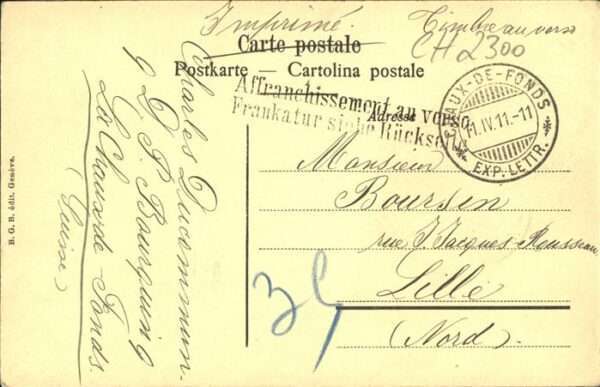 Imprimé.
Timbre au verso
CH 2300
Carte postale
Postkarte — Cartolina postale
Affranchissement au verso
Frankatur siehe Rückseite
Adresse
CHAUX-DE-FONDS
11.IV.11.-11
EXP. LETTR.
Monsieur
Boursin
rue J. Jacques-Rousseau
Lille
(Nord).
Charles Ducommun.
9 D. P. Bourquin 9
La Chaux de Fonds.
(Suisse)
B. G. B. édit. Genève.